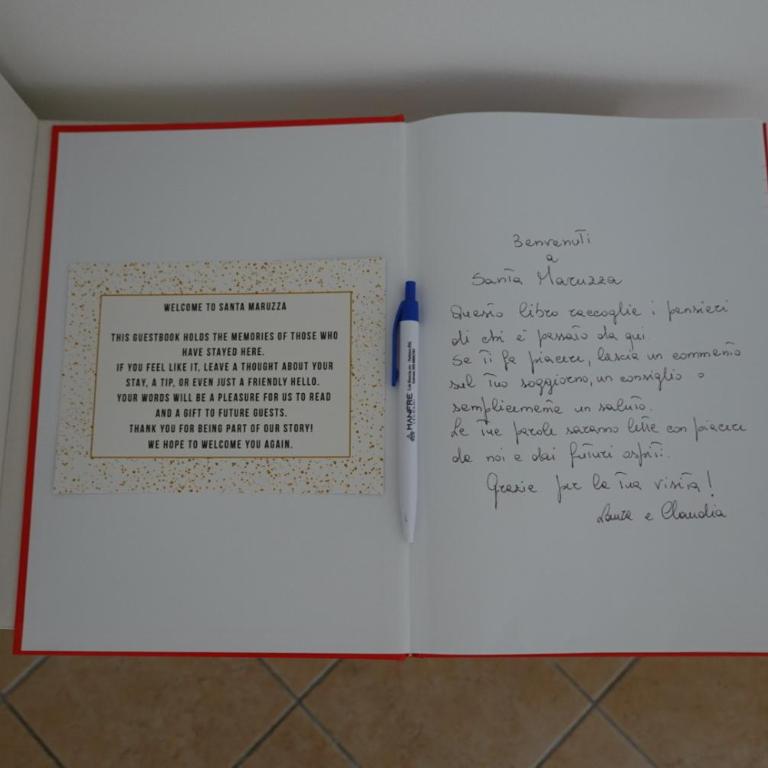 WELCOME TO SANTA MARUZZA
THIS GUESTBOOK HOLDS THE MEMORIES OF THOSE WHO
HAVE STAYED HERE.
IF YOU FEEL LIKE IT, LEAVE A THOUGHT ABOUT YOUR
STAY, A TIP, OR EVEN JUST A FRIENDLY HELLO.
YOUR WORDS WILL BE A PLEASURE FOR US TO READ
AND A GIFT TO FUTURE GUESTS.
THANK YOU FOR BEING PART OF OUR STORY!
WE HOPE TO WELCOME YOU AGAIN.
MANFRE
Benvenuti
a
Santa Maruzza
Questo libro raccoglie i pensieri
di chi è passato da qui.
Se ti fa piacere, lascia un commento
sul tuo soggiorno, un consiglio o
semplicemente un saluto.
Le tue parole saranno lette con piacere
da noi e dai futuri ospiti.
Grazie per la tua visita!
e Claudia